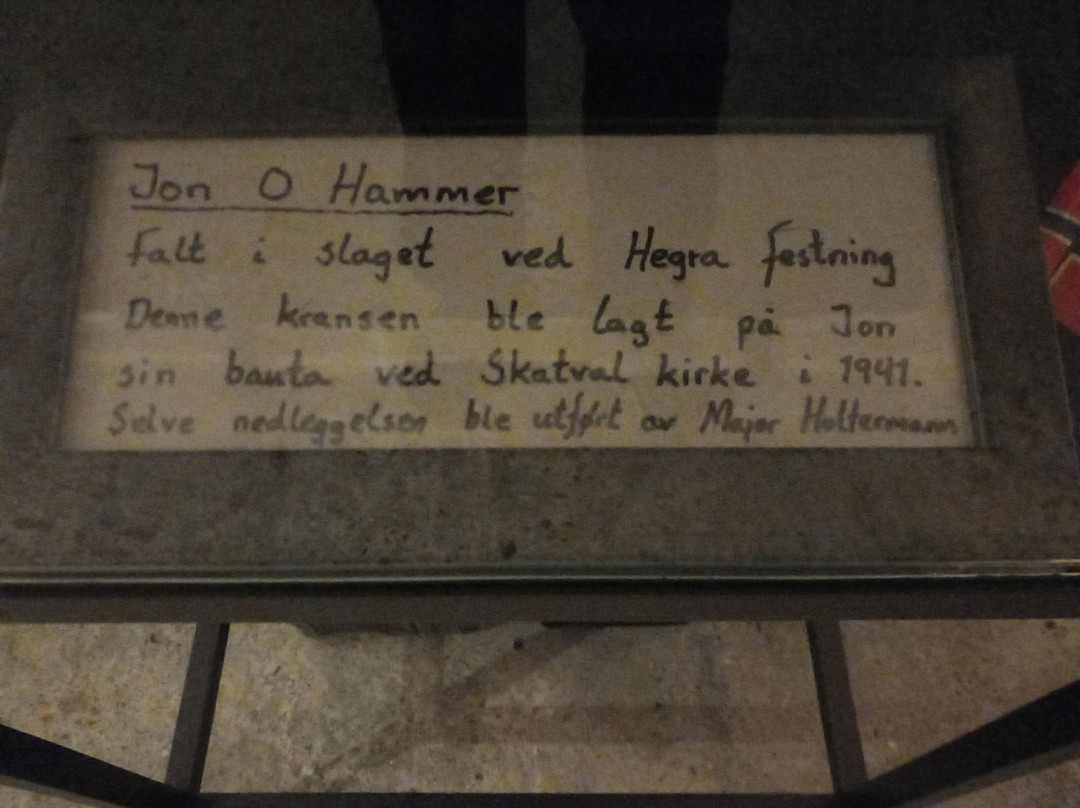 Jon O Hammer
Falt i slaget ved Hegra festning
Denne kransen ble lagt på Jon
sin bauta ved Skatval kirke i 1941.
Selve nedleggelsen ble utført av Major Holtermann